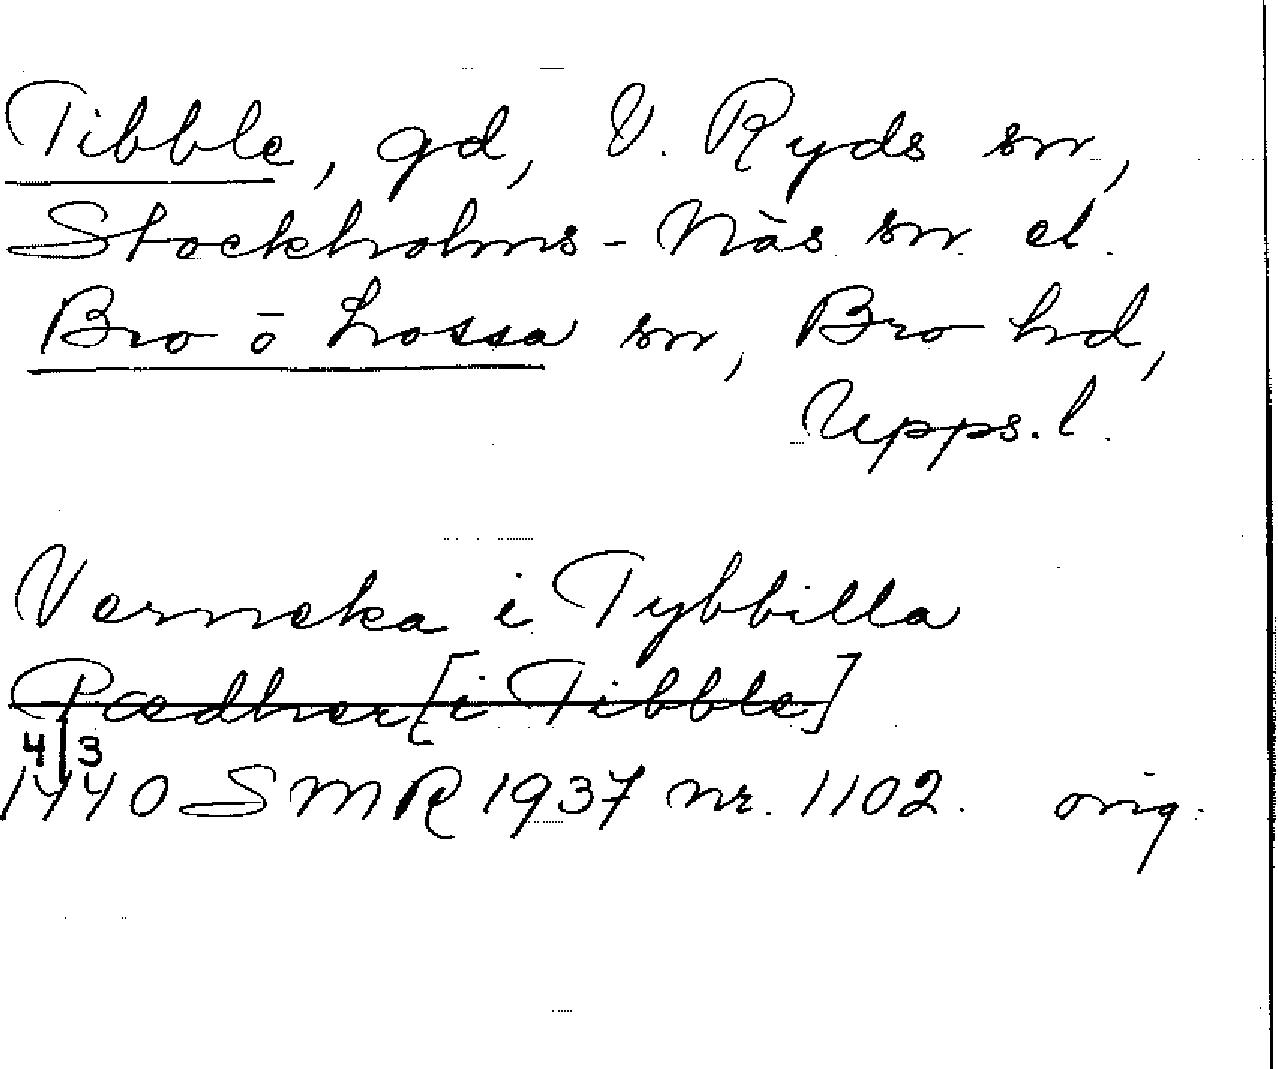 Tibble, gd, V. Ryds sn,
Stockholms-Näs sn el.
Bro o Lossa sn, Bro hd,
Upps. l.
Verneka i Tybbilla
Pædher [i Tibble]
4/3
1440 SMR 1937 nr. 1102. orig.